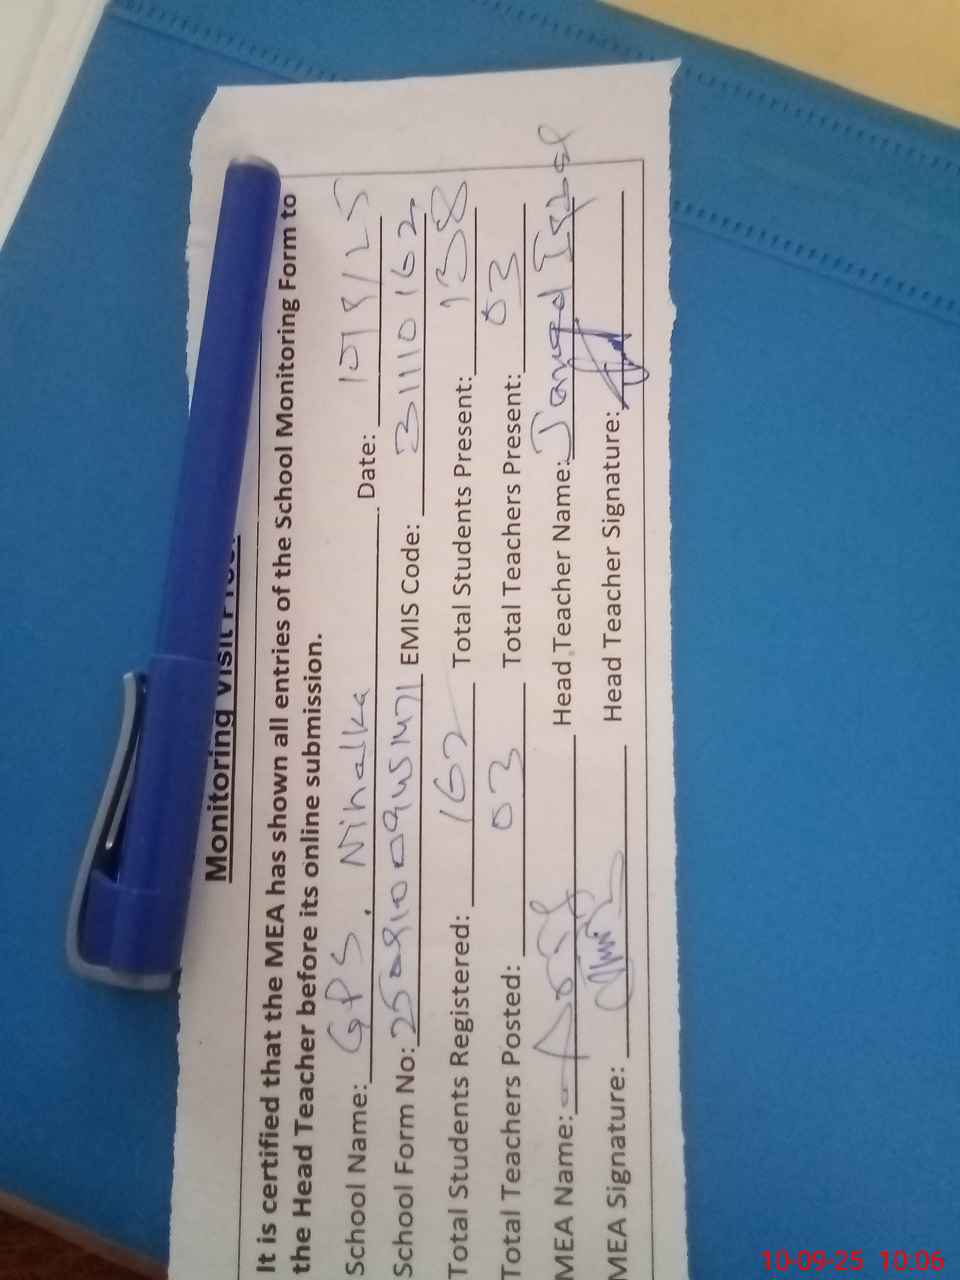 Monitoring Visit
It is certified that the MEA has shown all entries of the School Monitoring Form to
the Head Teacher before its online submission.
School Name: GPS, Nihalka Date: 10/9/25
School Form No: EMIS Code: 31110162
Total Students Registered: 162 Total Students Present: 138
Total Teachers Posted: 03 Total Teachers Present: 03
MEA Name: Head Teacher Name:
MEA Signature: Head Teacher Signature:
10-09-25 10:06